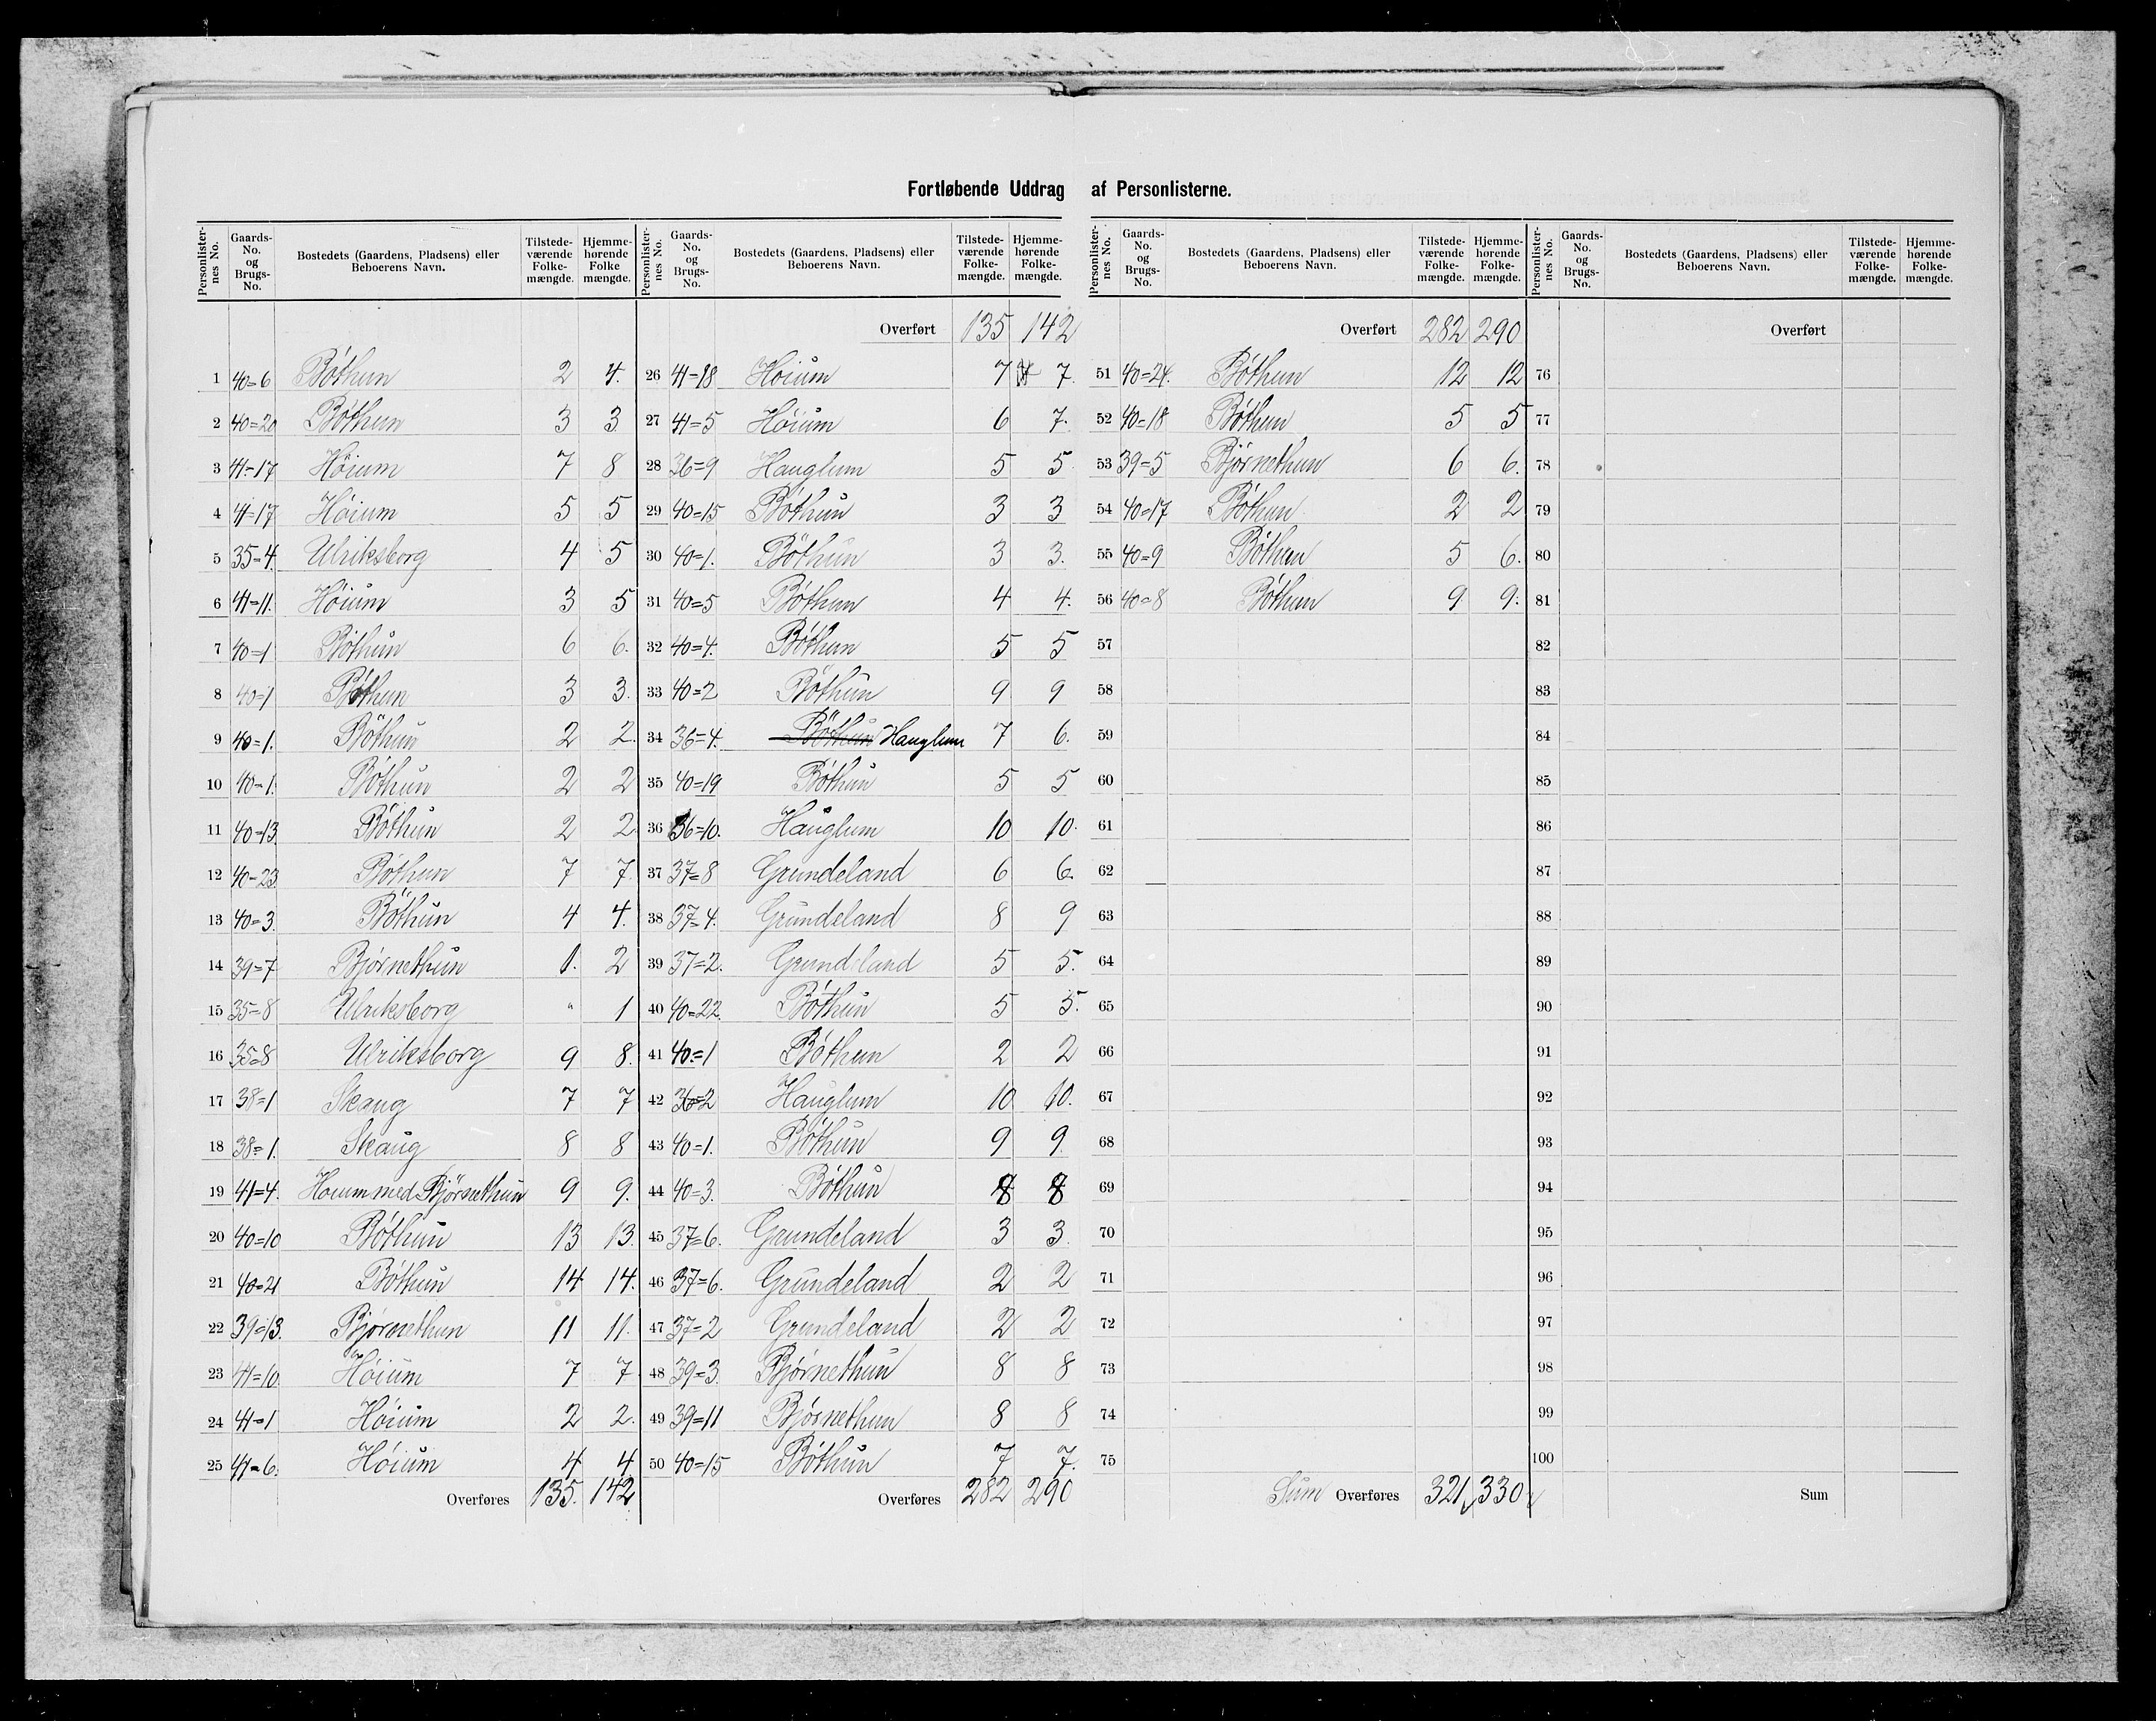 Fortløbende Uddrag af Personlisterne.
Personlister-nes No. | Gaards-No. og Brugs-No. | Bostedets (Gaardens, Pladsens) eller Beboerens Navn. | Tilstede-værende Folke-mængde. | Hjemme-hørende Folke mængde.
1 40=6 Bóthun 2 4.
2 40=20 Bóthun 3 3
3 41-17 Höium 7 8
4 41=17 Höium 5 5
5 35=4. Ulriksborg 4 5
6 41=11. Höium 3 5
7 40=1 Bóthun 6 6.
8 40=1 Bóthun 3 3.
9 40=1. Bóthun 2 2.
10 40=1. Bóthun 2 2
11 40=13. Bóthun 2 2
12 40-23 Bóthun 7 7.
13 40=3. Bóthun 4 4.
14 39=7 Bjórnethun 1. 2
15 35=8 Ulriksborg " 1
16 35=8 Ulriksborg 9 8.
17 38=1 Skaug 7 7
18 38=1. Skaug 8 8
19 41=4. Hoium med Bjórnethun 9 9.
20 40=10 Bóthun 13 13.
21 40=21 Bóthun 14 14.
22 39=13. Bjórnethun 11 11.
23 41=10. Höium 7 7
24 41=1 Höium 2 2.
25 41=6. Höium 4 4
Overføres 135. 142
Personlister-nes No. | Gaards-No. og Brugs-No. | Bostedets (Gaardens, Pladsens) eller Beboerens Navn. | Tilstede-værende Folke-mængde. | Hjemme-hørende Folke-mængde.
Overført 135 142
26 41-18 Höium 7 7.
27 41=5 Höium 6 7.
28 36=9 Hauglum 5 5
29 40=15 Bóthun 3 3
30 40=1. Bóthun 3 3.
31 40=5 Bóthun 4 4.
32 40=4. Bóthun 5 5
33 40=2 Bóthun 9 9
34 36=4. Bóthun Hauglum 7 6.
35 40=19 Bóthun 5 5
36 36=10. Hauglum 10 10.
37 37=8 Grundeland 6 6.
38 37=4. Grundeland 8 9
39 37=2. Grundeland 5 5.
40 40=22. Bóthun 5 5.
41 40=1 Bóthun 2 2
42 36=2 Hauglum 10 10.
43 40=1. Bóthun 9 9.
44 40=3. Bóthun 8 8
45 37=6. Grundeland 3 3.
46 37=6. Grundeland 2 2
47 37=2 Grundeland 2 2
48 39=3. Bjórnethun 8 8
49 39=11 Bjórnethun 8 8
50 40=15 Bóthun 7 7.
Overføres 282 290
Personlister-nes No. | Gaards-No. og Brugs-No. | Bostedets (Gaardens, Pladsens) eller Beboerens Navn. | Tilstede-værende Folke-mængde. | Hjemme-hørende Folke-mængde.
Overført 282 290
51 40=24. Bóthun 12 12
52 40=18 Bóthun 5 5
53 39=5 Bjórnethun 6 6.
54 40=17 Bóthun 2 2
55 40=9 Bóthun 5 6.
56 40=8 Bóthun 9 9.
57
58
59
60
61
62
63
64
65
66
67
68
69
70
71
72
73
74
75
Sum Overføres 321 330
Personlister-nes No. | Gaards-No. og Brugs-No. | Bostedets (Gaardens, Pladsens) eller Beboerens Navn. | Tilstede-værende Folke-mængde. | Hjemme-hørende Folke-mængde.
Overført
76
77
78
79
80
81
82
83
84
85
86
87
88
89
90
91
92
93
94
95
96
97
98
99
100
Sum